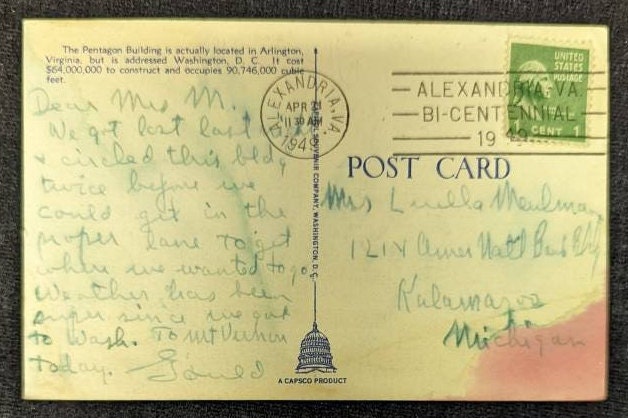 The Pentagon Building is actually located in Arlington,
Virginia, but is addressed Washington, D. C. It cost
$64,000,000 to construct and occupies 90,746,000 cubic
feet.
Dear Mrs M.
We got lost last
& circled this bldg
twice before we
could get in the
proper lane to get
where we wanted to go
Weather has been
super since we got
to Wash. To Mt Vernon
today.
ALEXANDRIA, VA.
APR 21
11 30 AM
1949
ALEXANDRIA, VA.
BI-CENTENNIAL
1949
UNITED
STATES
POSTAGE
CENT 1
SOUVENIR COMPANY, WASHINGTON, D. C.
POST CARD
Mrs Luella
1214 Amer Natl Bank Bldg
Kalamazoo
Michigan
A CAPSCO PRODUCT